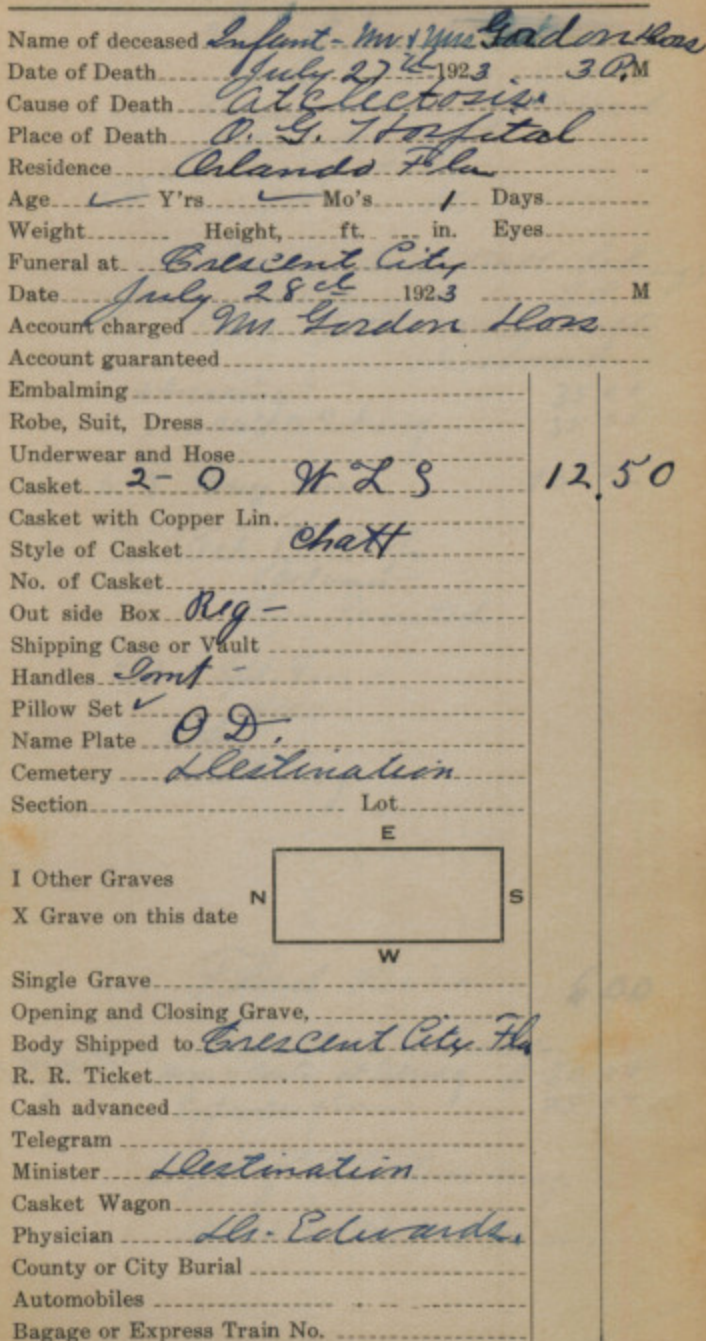 Name of deceased Infant - Mr & Mrs Gordon
Date of Death July 27th 1923 3 P.M
Cause of Death Atelectosis
Place of Death O. G. Hospital
Residence Orlando Fla
Age ✓ Y'rs ✓ Mo's 1 Days
Weight Height, ft. in. Eyes
Funeral at Crescent City
Date July 28th 1923 M
Account charged Mr Gordon
Account guaranteed
Embalming
Robe, Suit, Dress
Underwear and Hose
Casket 2-0 W L S 12.50
Casket with Copper Lin.
Style of Casket Chatt
No. of Casket
Out side Box Reg -
Shipping Case or Vault
Handles
Pillow Set ✓
Name Plate O D.
Cemetery Destination
Section Lot
E
I Other Graves
N S
X Grave on this date
W
Single Grave
Opening and Closing Grave,
Body Shipped to Crescent City Fla
R. R. Ticket
Cash advanced
Telegram
Minister Destination
Casket Wagon
Physician Dr. Edwards.
County or City Burial
Automobiles
Bagage or Express Train No.